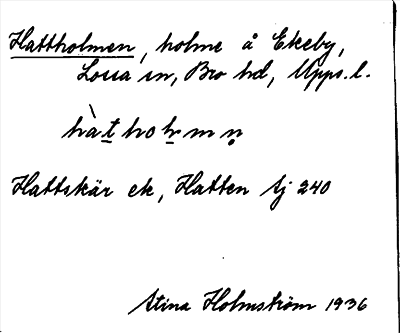 Hattholmen, holme å Ekeby,
Lossa sn, Bro hd, Upps.l.
hàt̲hoh̲mṇ
Hattskär ek, Hatten tj 240
Stina Holmström 1936